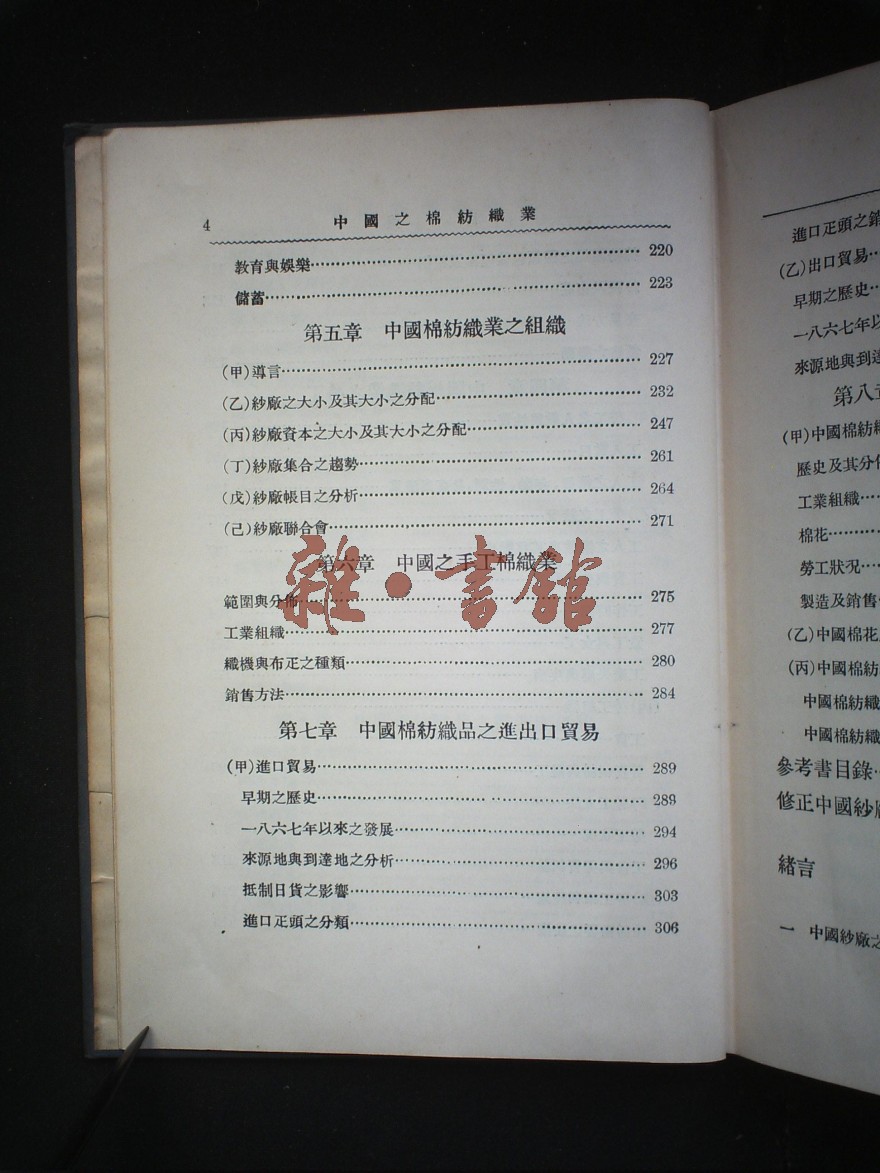 4 中國之棉紡織業
教育與娛樂 220
儲蓄 223
第五章 中國棉紡織業之組織
(甲)導言 227
(乙)紗廠之大小及其大小之分配 232
(丙)紗廠資本之大小及其大小之分配 247
(丁)紗廠集合之趨勢 261
(戊)紗廠帳目之分析 264
(己)紗廠聯合會 271
第六章 中國之手工棉織業
範圍與分佈 275
工業組織 277
織機與布疋之種類 280
銷售方法 284
第七章 中國棉紡織品之進出口貿易
(甲)進口貿易 289
早期之歷史 289
一八六七年以來之發展 294
來源地與到達地之分析 296
抵制日貨之影響 303
進口疋頭之分類 306
雜·書館
進口疋頭之銷
(乙)出口貿易
早期之歷史
一八六七年以
來源地與到達
第八章
(甲)中國棉紡
歷史及其分佈
工業組織
棉花
勞工狀况
製造及銷售
(乙)中國棉花
(丙)中國棉紡
中國棉紡織
中國棉紡織
參考書目錄
修正中國紗廠
緒言
一 中國紗廠之